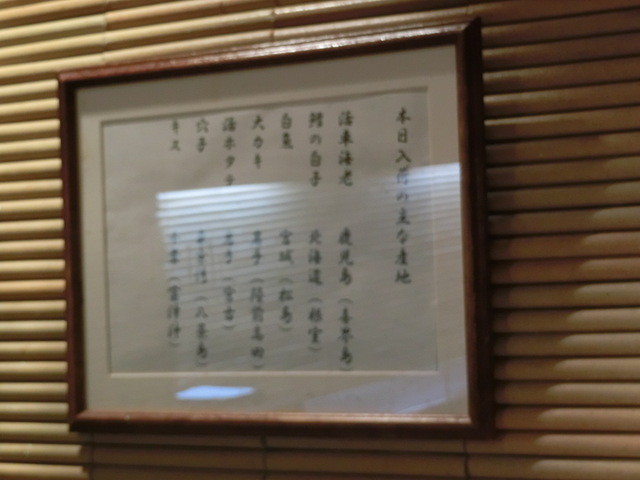 本日入荷の主な産地
活車海老 鹿児島（喜界島）
鱈の白子 北海道（根室）
白魚 宮城（松島）
大カキ 岩手（陸前高田）
活ホタテ 岩手（宮古）
穴子
キス 千葉（富津沖）